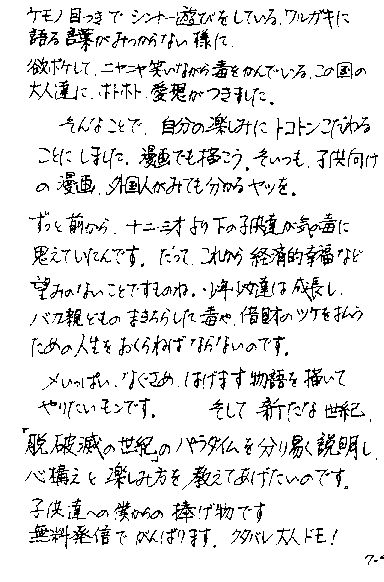 ケモノ目つきでシンナー遊びをしている、ワルガキに
語る言葉がみつからない様に
欲ボケして、ニヤニヤ笑いながら毒をかんでいる、この国の
大人達に、ホトホト、愛想がつきました。
そんなことで、自分の楽しみにトコトンこだわる
ことにしました。漫画でも描こう。そいつも、子供向け
の漫画、外国人がみても分かるヤツを。
ずっと前から、十二、三才より下の子供達が気の毒に
思えていたんです。だって、これから経済的幸福など
望みのないことですものね。少年少女達は成長し、
バカ親どものまきちらした毒や、借財のツケをはらう
ための人生をおくらねばならないのです。
メいっぱい、なぐさめ、はげます物語を描いて
やりたいモンです。 そして新たな世紀、
「脱破滅の世紀」のパラダイムを分り易く説明し、
心構えと楽しみ方を教えてあげたいのです。
子供達への僕からの捧げ物です
無料発信でがんばります。クタバレ大人ドモ!